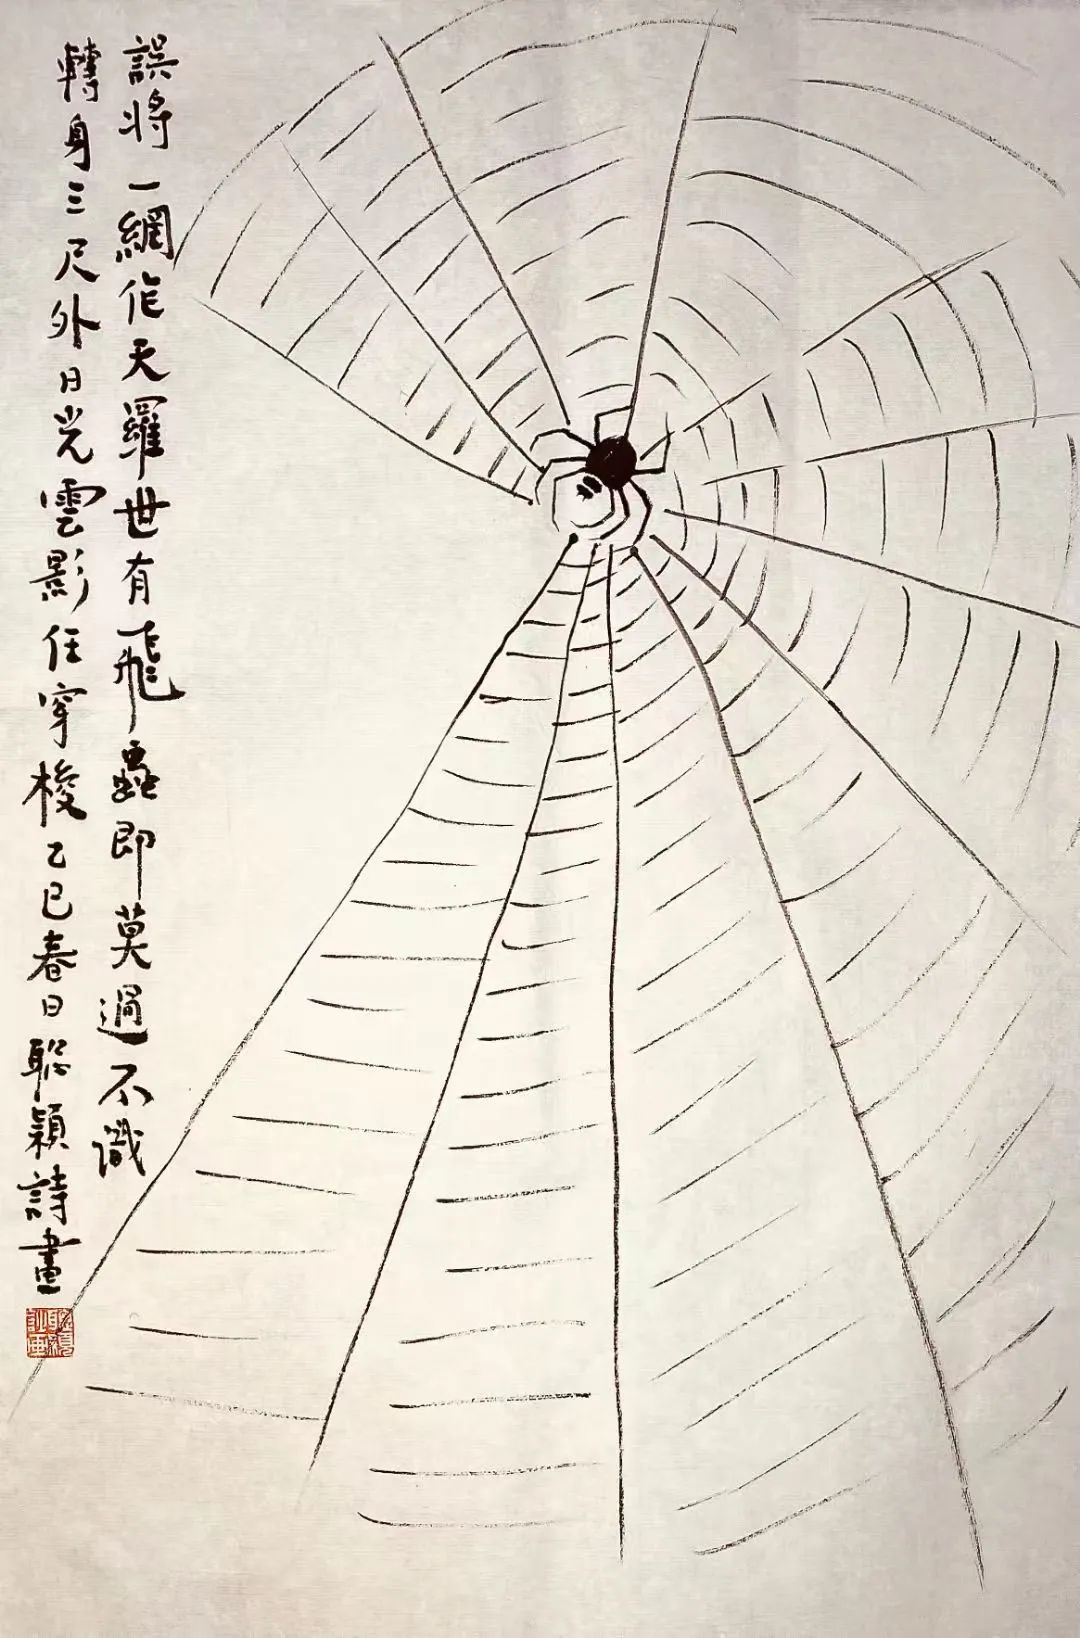 誤將一網作天羅世有飛蟲即莫過不識
轉身三尺外日光雲影任穿梭乙巳春日聰穎詩畫